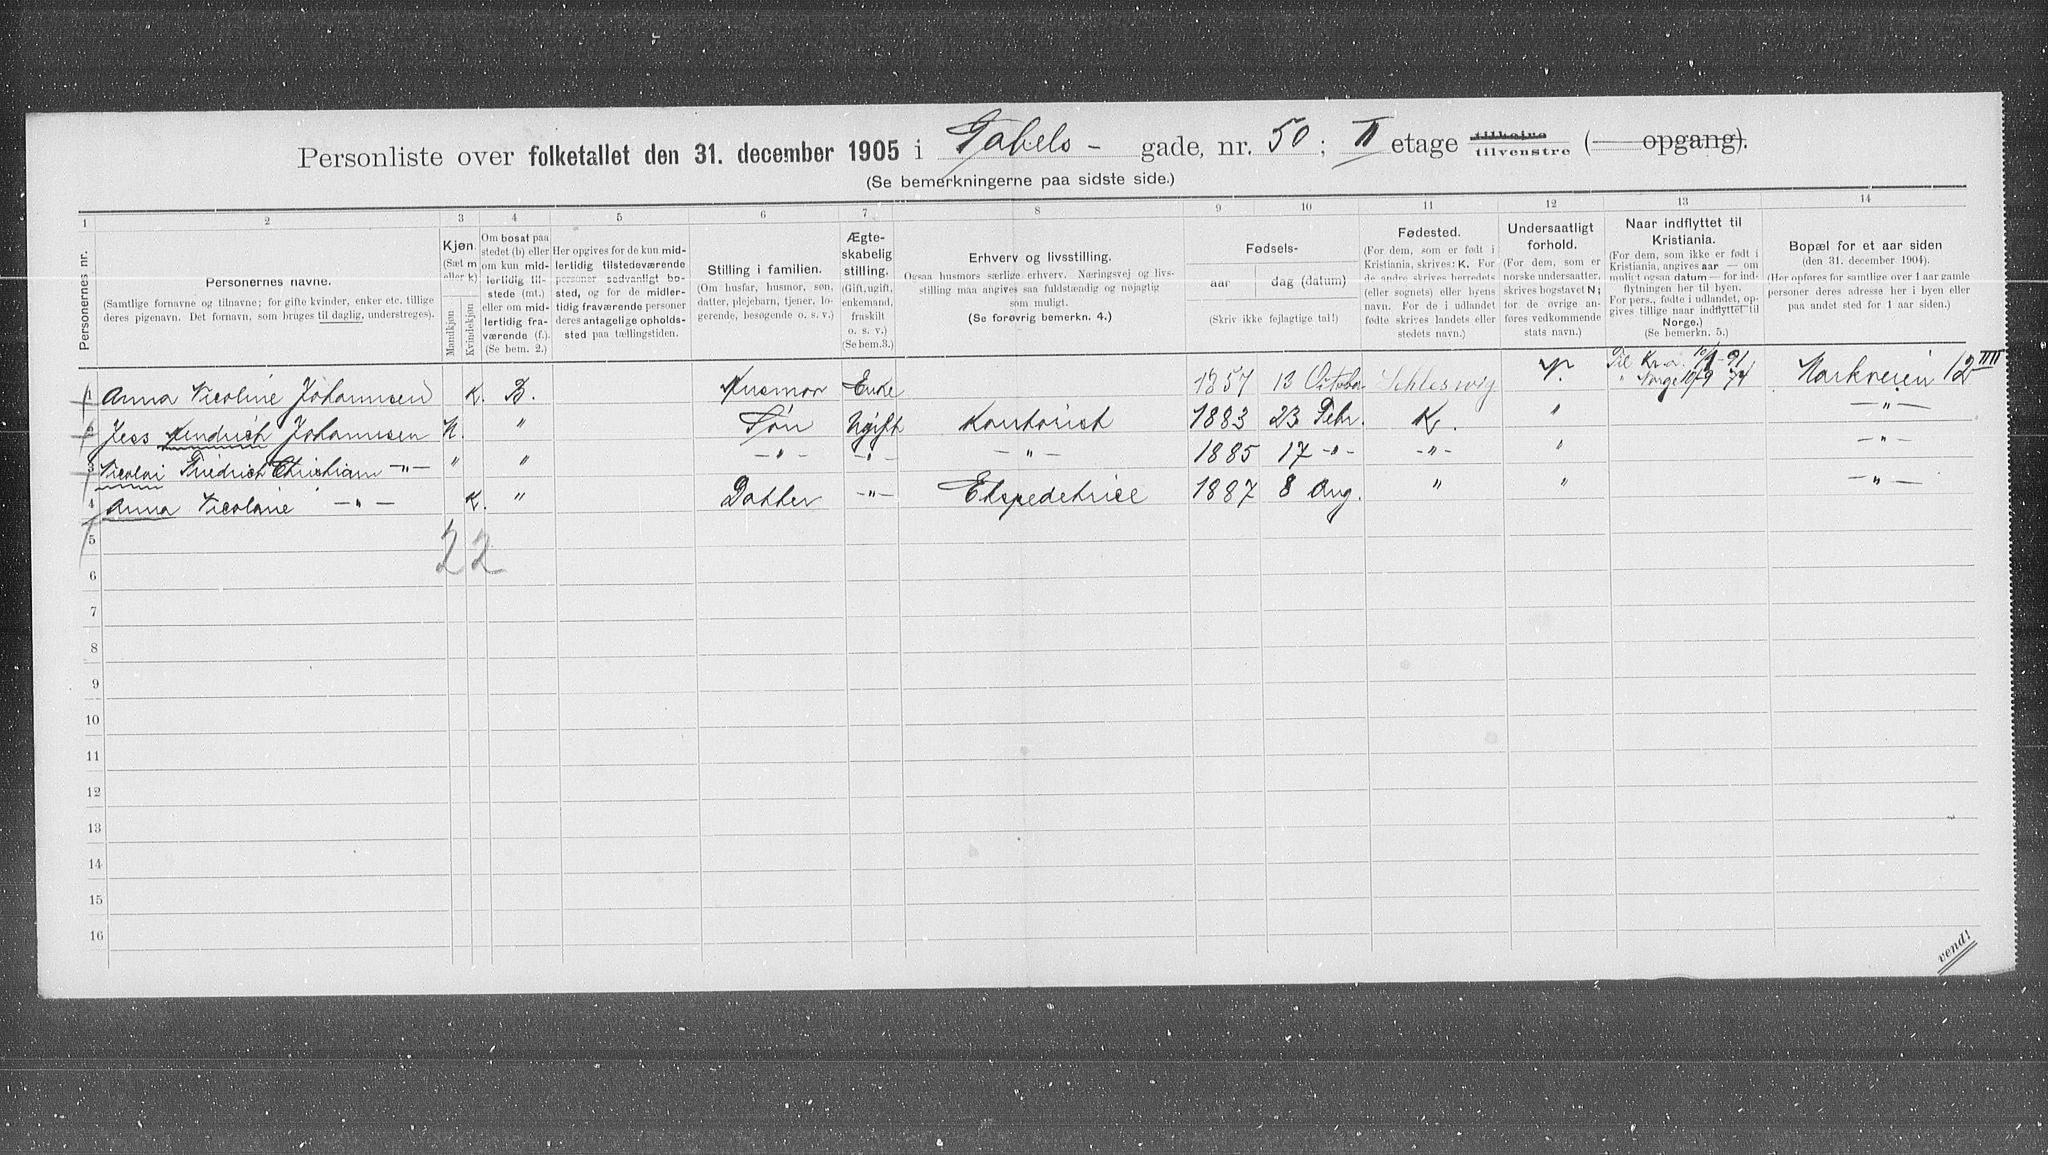 Personliste over folketallet den 31. december 1905 i Gabels - gade, nr. 50; II etage tilhøire tilvenstre (— opgang).
(Se bemerkningerne paa sidste side.)
1 2 3 4 5 6 7 8 9 10 11 12 13 14
Personernes nr.
Personernes navne.
(Samtlige fornavne og tilnavne; for gifte kvinder, enker etc. tillige deres pigenavn. Det fornavn, som bruges til daglig, understreges).
Kjøn.
(Sæt m eller k)
Mandkjøn
Kvindekjøn
Om bosat paa stedet (b) eller om kun midlertidig tilstede (mt.) eller om midlertidig fraværende (f.). (Se bem. 2.)
Her opgives for de kun midlertidig tilstedeværende personer sedvanligt bosted, og for de midlertidig fraværende personer deres antagelige opholdssted paa tællingstiden.
Stilling i familien.
(Om husfar, husmor, søn, datter, plejebarn, tjener, logerende, besøgende o. s. v.)
Ægteskabelig stilling.
(Gift, ugift, enkemand, fraskilt o. s. v.)
(Se bem.3.)
Erhverv og livsstilling.
Ogsaa husmors særlige erhverv. Næringsvej og livsstilling maa angives saa fuldstændig og nøjagtig som muligt.
(Se forøvrig bemerkn. 4.)
Fødsels-
aar
dag (datum)
(Skriv ikke fejlagtige tal!)
Fødested.
(For dem, som er født i Kristiania, skrives: K. For de andre skrives herredets (eller sognets) eller byens navn. For de i udlandet fødte skrives landets eller stedets navn.)
Undersaatligt forhold.
(For dem, som er norske undersaatter, skrives bogstavet N; for de øvrige anføres vedkommende stats navn.)
Naar indflyttet til Kristiania.
(For dem, som ikke er født i Kristiania, angives aar — om muligt ogsaa datum — for indflytningen her til byen. For pers., fødte i udlandet, opgives tillige naar indflyttet til Norge.)
(Se bemerkn. 5.)
Bopæl for et aar siden
(den 31. december 1904).
(Her opføres for samtlige over 1 aar gamle personer deres adresse her i byen eller paa andet sted for 1 aar siden.)
1 Anna Nicoline Johannsen K. B. Husmor Enke 1857 13 October Schleswig N. Til Kr.a. 10/9 - 91 " Norge 10/9 74 Markveien 12 IIII
2 Jess Hendrich Johannsen M. " Søn Ugift Kontorist 1883 23 Febr. K. " —"—
3 Nicolai Friedrich Christian —"— " " —"— —"— —"— 1885 17 —"— —"— " —"—
4 Anna Nicoline —"— K. " Datter —"— Ekspedetrice 1887 8 Aug. " " —"—
5 2 2
6
7
8
9
10
11
12
13
14
15
16
vend!